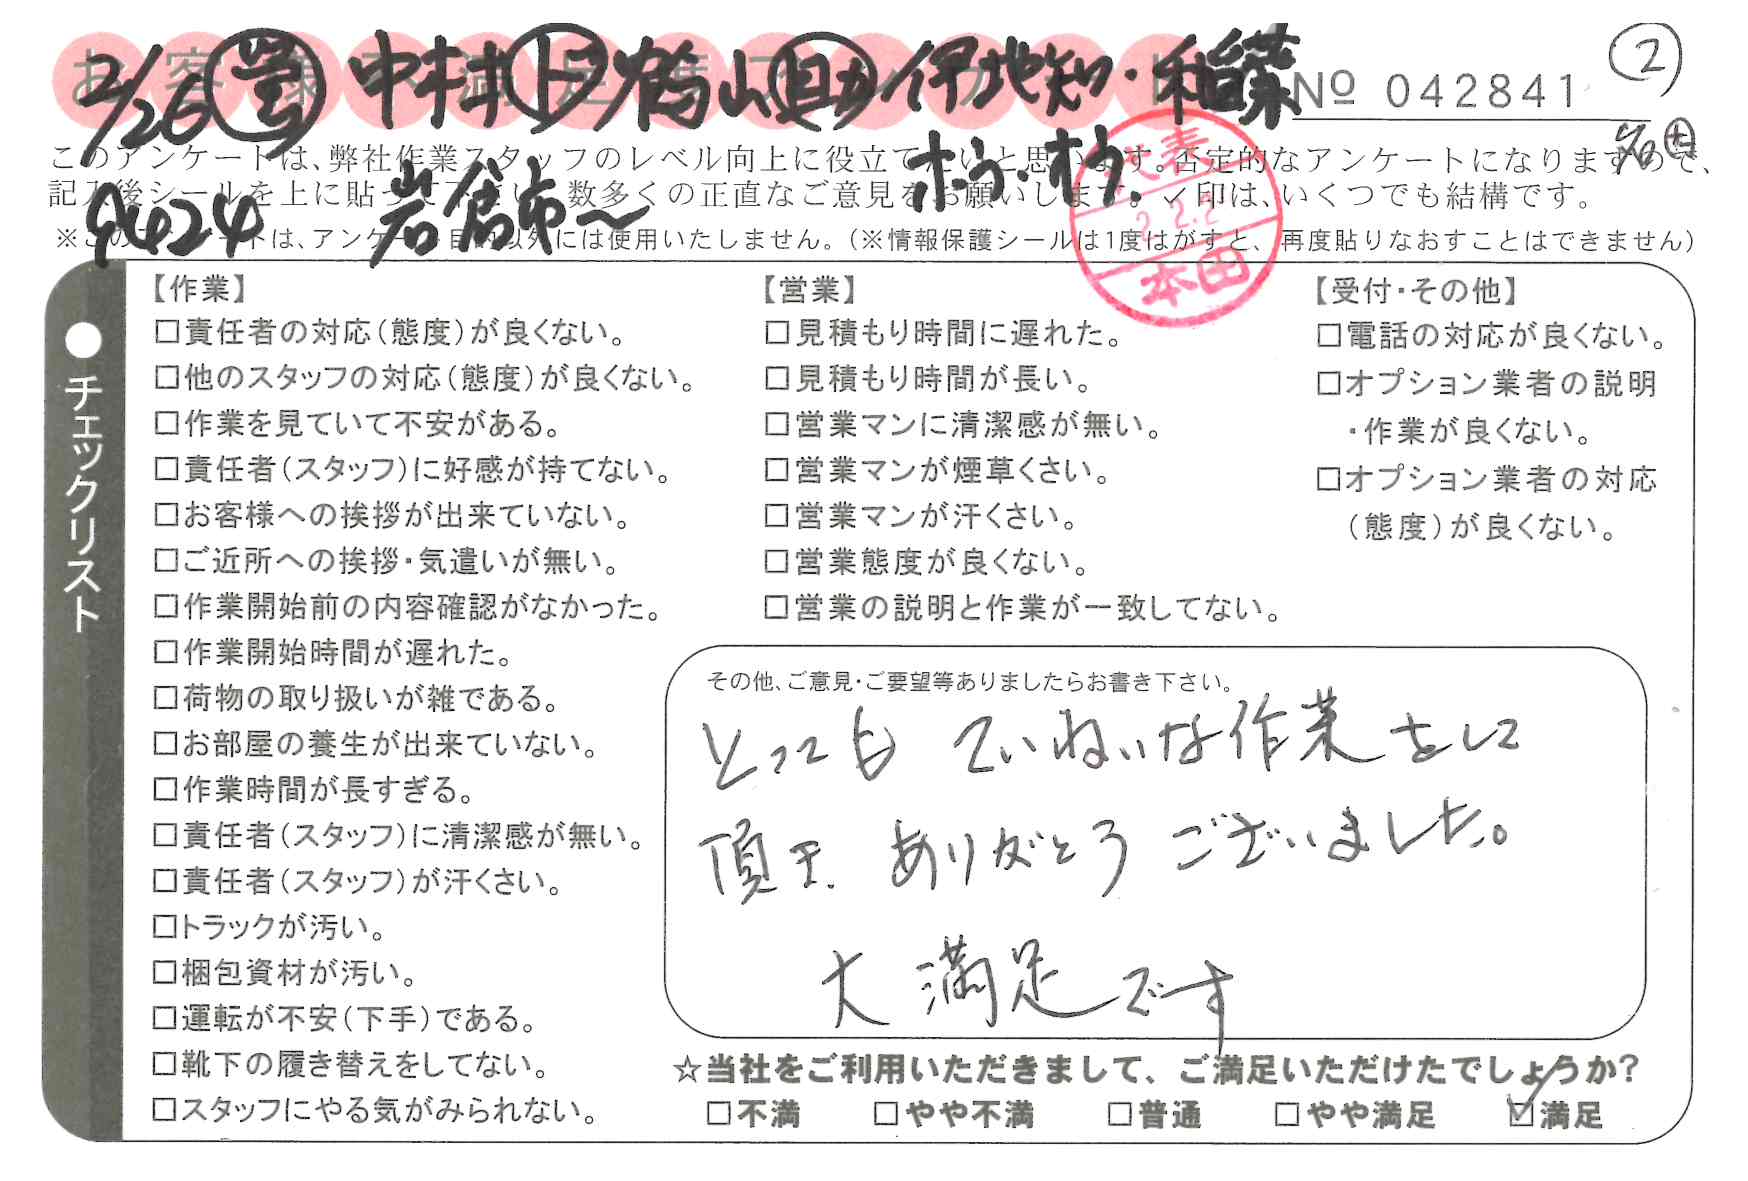 2/26 営 中村 ト 鶴山 助 伊地知・稲葉
№ 042841
2
このアンケートは、弊社作業スタッフのレベル向上に役立て
いと思います。否定的なアンケートになりますので、
記入後シールを上に貼って下さい。数多くの正直なご意見をお願いします。✓印は、いくつでも結構です。
9424 岩倉市〜
※このアンケートは、アンケート目的以外には使用いたしません。(※情報保護シールは1度はがすと、再度貼りなおすことはできません)
代表
2.2.2
本田
●チェックリスト
【作業】
□責任者の対応(態度)が良くない。
□他のスタッフの対応(態度)が良くない。
□作業を見ていて不安がある。
□責任者(スタッフ)に好感が持てない。
□お客様への挨拶が出来ていない。
□ご近所への挨拶・気遣いが無い。
□作業開始前の内容確認がなかった。
□作業開始時間が遅れた。
□荷物の取り扱いが雑である。
□お部屋の養生が出来ていない。
□作業時間が長すぎる。
□責任者(スタッフ)に清潔感が無い。
□責任者(スタッフ)が汗くさい。
□トラックが汚い。
□梱包資材が汚い。
□運転が不安(下手)である。
□靴下の履き替えをしてない。
□スタッフにやる気がみられない。
【営業】
□見積もり時間に遅れた。
□見積もり時間が長い。
□営業マンに清潔感が無い。
□営業マンが煙草くさい。
□営業マンが汗くさい。
□営業態度が良くない。
□営業の説明と作業が一致してない。
【受付・その他】
□電話の対応が良くない。
□オプション業者の説明
・作業が良くない。
□オプション業者の対応
(態度)が良くない。
その他、ご意見・ご要望等ありましたらお書き下さい。
とってもていねいな作業をして
頂き、ありがとうございました。
大満足です
☆当社をご利用いただきまして、ご満足いただけたでしょうか?
□不満 □やや不満 □普通 □やや満足 ☑満足